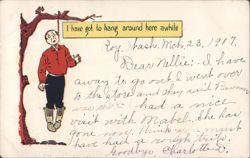 I have got to hang around here awhile
Roy, Wash. Mch. 23, 1907.
Dear Nellie:- I have
away to go out I went over
to the store and they said
had a nice
visit with Mabel. She has
gone now.
have had a rough
Goodbye, Charlotte